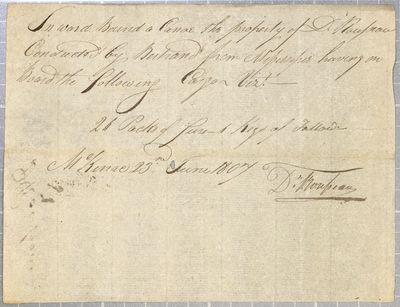 Inward Bound a Canoe the property of D. Rousseau
Conducted by Bertrand from Missisipi having on
board the following Cargo Vizt.
26 Packs of Furs 1 Keg of Tallow
McKinac 23rd June 1807
Dk. Rousseau